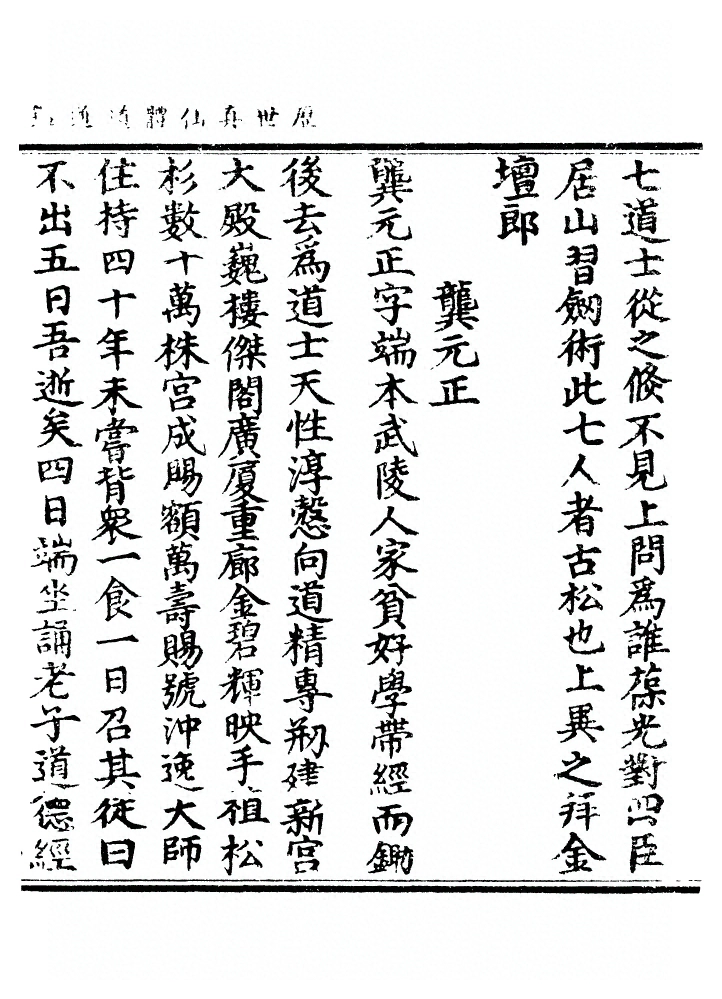 歷世真仙體道通鑑
七道士從之倐不見上問爲誰葆光對曰臣
居山習劒術此七人者古松也上異之拜金
壇郎
龔元正
龔元正字端本武陵人家貧好學帶經而鋤
後去爲道士天性淳慤向道精專剏建新宫
大殿巍樓傑閣廣厦重廊金碧輝映手植松
杉數十萬株宮成賜額萬壽賜號沖逸大師
住持四十年未嘗背衆一食一日召其徒曰
不出五日吾逝矣四日端坐誦老子道德經